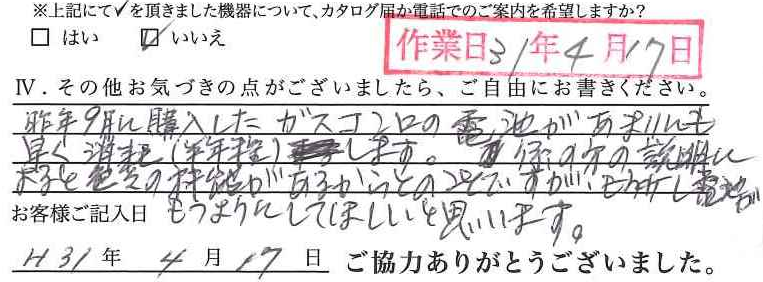 ※上記にて✓を頂きました機器について、カタログ届か電話でのご案内を希望しますか?
□ はい ☑ いいえ
作業日31年4月17日
Ⅳ．その他お気づきの点がございましたら、ご自由にお書きください。
昨年9月に購入したガスコンロの電池があまりにも
早く消耗(半年程)します。係の方の説明に
よると色々の機能があるからとのことですが、もう少し電池が
お客様ご記入日 もつようにしてほしいと思います。
H31年 4月 17日 ご協力ありがとうございました。